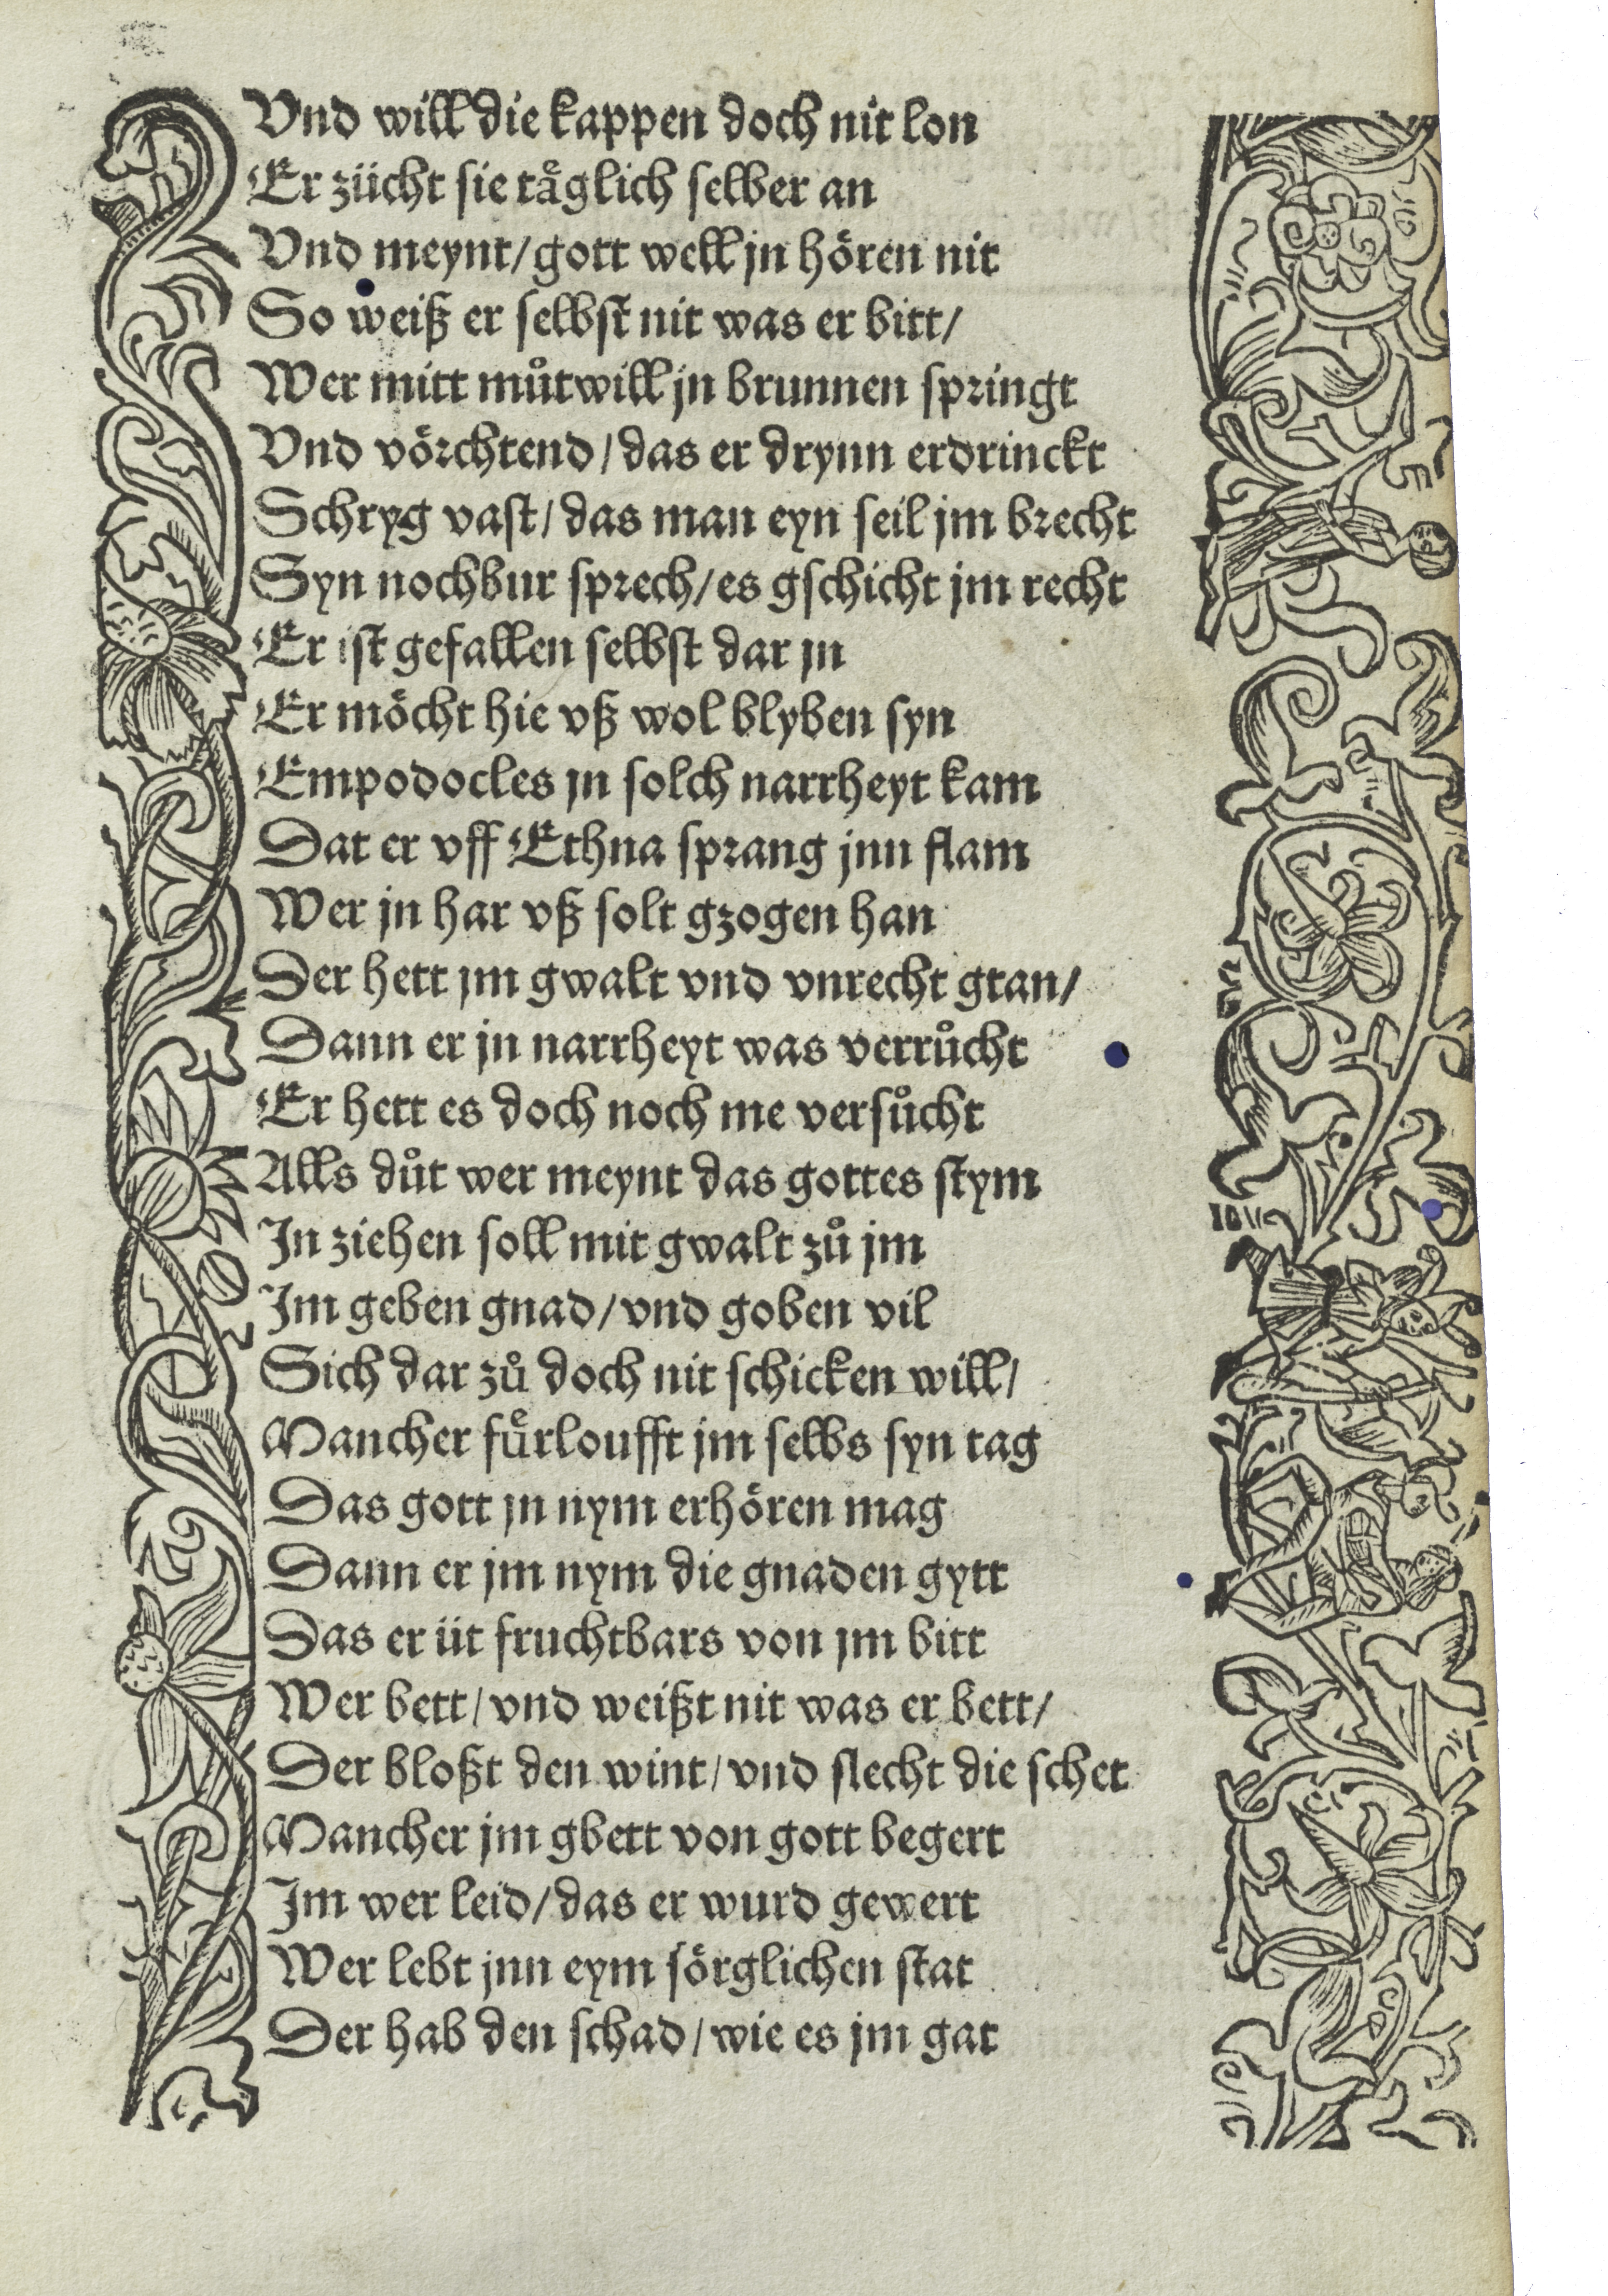 Vnd will die kappen doch nit lon
Er zücht sie tåglich selber an
Vnd meynt/gott well jn hören nit
So weiß er selbst nit was er bitt/
Wer mitt můtwill jn brunnen springt
Vnd vörchtend/das er drynn erdrinckt
Schryg vast/das man eyn seil jm brecht
Syn nochbur sprech/es gschicht jm recht
Er ist gefallen selbst dar jn
Er möcht hie vß wol blyben syn
Empodocles jn solch narrheyt kam
Dat er vff Ethna sprang jnn flam
Wer jn har vß solt gzogen han
Der hett jm gwalt vnd vnrecht gtan/
Dann er jn narrheyt was verrůcht
Er hett es doch noch me versůcht
Alls důt wer meynt das gottes stym
In ziehen soll mit gwalt zů jm
Im geben gnad/vnd goben vil
Sich dar zů doch nit schicken will/
Mancher fuͤrloufft jm selbs syn tag
Das gott jn nym erhören mag
Dann er jm nym die gnaden gytt
Das er üt fruchtbars von jm bitt
Wer bett/vnd weißt nit was er bett/
Der bloßt den wint/vnd slecht die schet
Mancher jm gbett von gott begert
Im wer leid/das er wurd gewert
Wer lebt jnn eym sörglichen stat
Der hab den schad/wie es jm gat